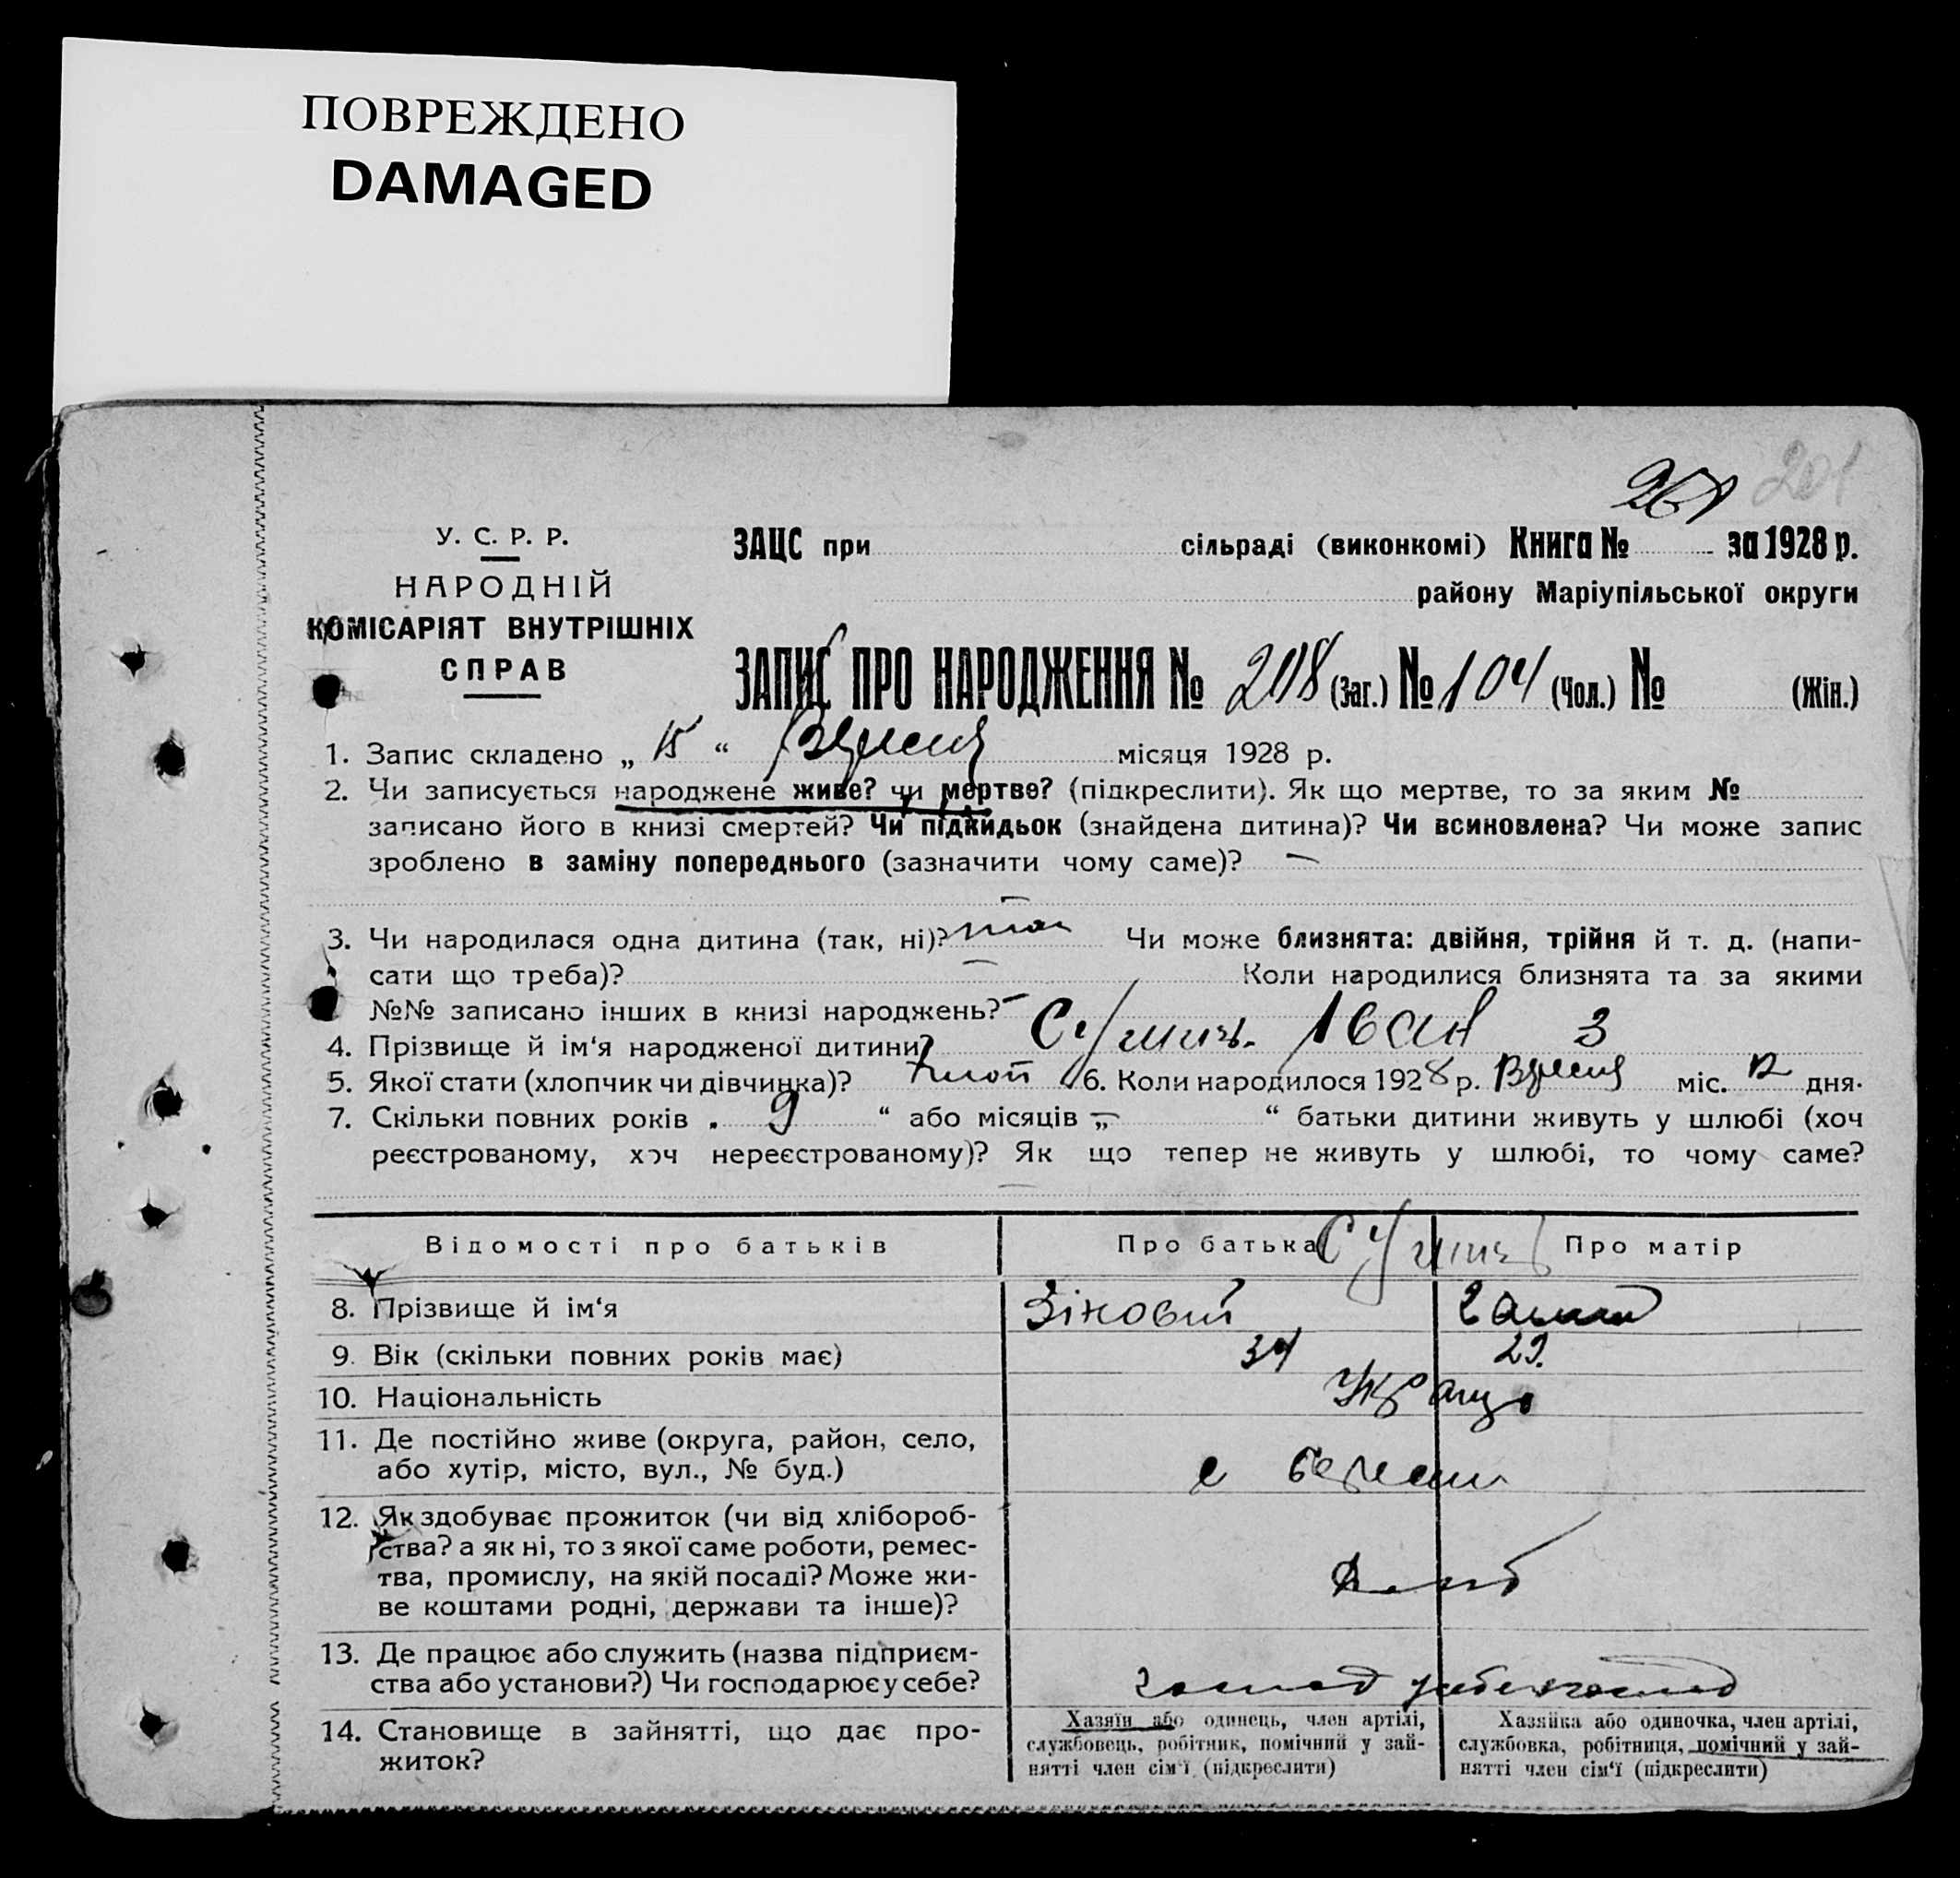 ПОВРЕЖДЕНО
DAMAGED
201
У. С. Р. Р.
НАРОДНІЙ
КОМІСАРІЯТ ВНУТРІШНІХ
СПРАВ
ЗАЦС при сільраді (виконкомі) Книга № за 1928 р.
району Маріупільської округи
ЗАПИС ПРО НАРОДЖЕННЯ № 208 (заг.) № 104 (чол.) № (жін.)
1. Запис складено „ 15 “ Вересня місяця 1928 р.
2. Чи записується народжене живе? чи мертве? (підкреслити). Як що мертве, то за яким №
записано його в книзі смертей? Чи підкидьок (знайдена дитина)? Чи всиновлена? Чи може запис
зроблено в заміну попереднього (зазначити чому саме)? —
3. Чи народилася одна дитина (так, ні)? так Чи може близнята: двійня, трійня й т. д. (напи-
сати що треба)? — Коли народилися близнята та за якими
№№ записано інших в книзі народжень? —
4. Прізвище й ім‘я народженої дитини? Іван З
5. Якої стати (хлопчик чи дівчинка)? хлоп 6. Коли народилося 1928 р. Вересня міс. 12 дня.
7. Скільки повних років „ 9 “ або місяців „ — “ батьки дитини живуть у шлюбі (хоч
реєстрованому, хоч нереєстрованому)? Як що тепер не живуть у шлюбі, то чому саме?
—
Відомості про батьків Про батька Про матір
8. Прізвище й ім‘я Зіновій
9. Вік (скільки повних років має) 34 29.
10. Національність Україц
11. Де постійно живе (округа, район, село,
або хутір, місто, вул., № буд.) с
12. Як здобуває прожиток (чи від хлібороб-
ства? а як ні, то з якої саме роботи, ремес-
тва, промислу, на якій посаді? Може жи-
ве коштами родні, держави та інше)?
13. Де працює або служить (назва підприєм-
ства або установи?) Чи господарює у себе?
14. Становище в зайнятті, що дає про-
житок?
Хазяїн або одинець, член артілі,
службовець, робітник, помічний у зай-
нятті член сім‘ї (підкреслити)
Хазяйка або одиночка, член артілі,
службовка, робітниця, помічний у зай-
нятті член сім‘ї (підкреслити)